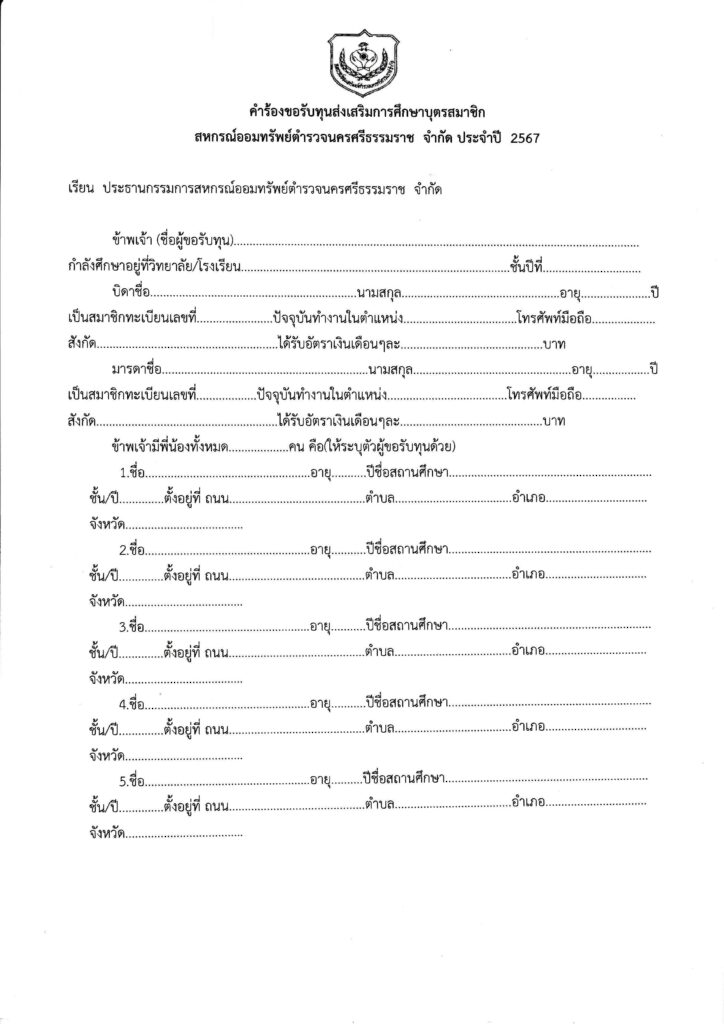 คำร้องขอรับทุนส่งเสริมการศึกษาบุตรสมาชิก
สหกรณ์ออมทรัพย์ตำรวจนครศรีธรรมราช จำกัด ประจำปี 2567
เรียน ประธานกรรมการสหกรณ์ออมทรัพย์ตำรวจนครศรีธรรมราช จำกัด
ข้าพเจ้า (ชื่อผู้ขอรับทุน)....................................................................................................
กำลังศึกษาอยู่ที่วิทยาลัย/โรงเรียน........................................................................ชั้นปีที่..........................
บิดาชื่อ.......................................................นามสกุล..........................................อายุ...................ปี
เป็นสมาชิกทะเบียนเลขที่....................ปัจจุบันทำงานในตำแหน่ง..............................โทรศัพท์มือถือ.................
สังกัด................................................ได้รับอัตราเงินเดือนๆละ......................................บาท
มารดาชื่อ.......................................................นามสกุล..........................................อายุ...............ปี
เป็นสมาชิกทะเบียนเลขที่................ปัจจุบันทำงานในตำแหน่ง................................โทรศัพท์มือถือ..............
สังกัด................................................ได้รับอัตราเงินเดือนๆละ......................................บาท
ข้าพเจ้ามีพี่น้องทั้งหมด................คน คือ(ให้ระบุตัวผู้ขอรับทุนด้วย)
1.ชื่อ............................................อายุ.........ปีชื่อสถานศึกษา......................................................
ชั้น/ปี............ตั้งอยู่ที่ ถนน....................................ตำบล...............................อำเภอ...........................
จังหวัด...............................
2.ชื่อ............................................อายุ.........ปีชื่อสถานศึกษา......................................................
ชั้น/ปี............ตั้งอยู่ที่ ถนน....................................ตำบล...............................อำเภอ...........................
จังหวัด...............................
3.ชื่อ............................................อายุ.........ปีชื่อสถานศึกษา......................................................
ชั้น/ปี............ตั้งอยู่ที่ ถนน....................................ตำบล...............................อำเภอ...........................
จังหวัด...............................
4.ชื่อ............................................อายุ.........ปีชื่อสถานศึกษา......................................................
ชั้น/ปี............ตั้งอยู่ที่ ถนน....................................ตำบล...............................อำเภอ...........................
จังหวัด...............................
5.ชื่อ............................................อายุ.........ปีชื่อสถานศึกษา......................................................
ชั้น/ปี............ตั้งอยู่ที่ ถนน....................................ตำบล...............................อำเภอ...........................
จังหวัด...............................